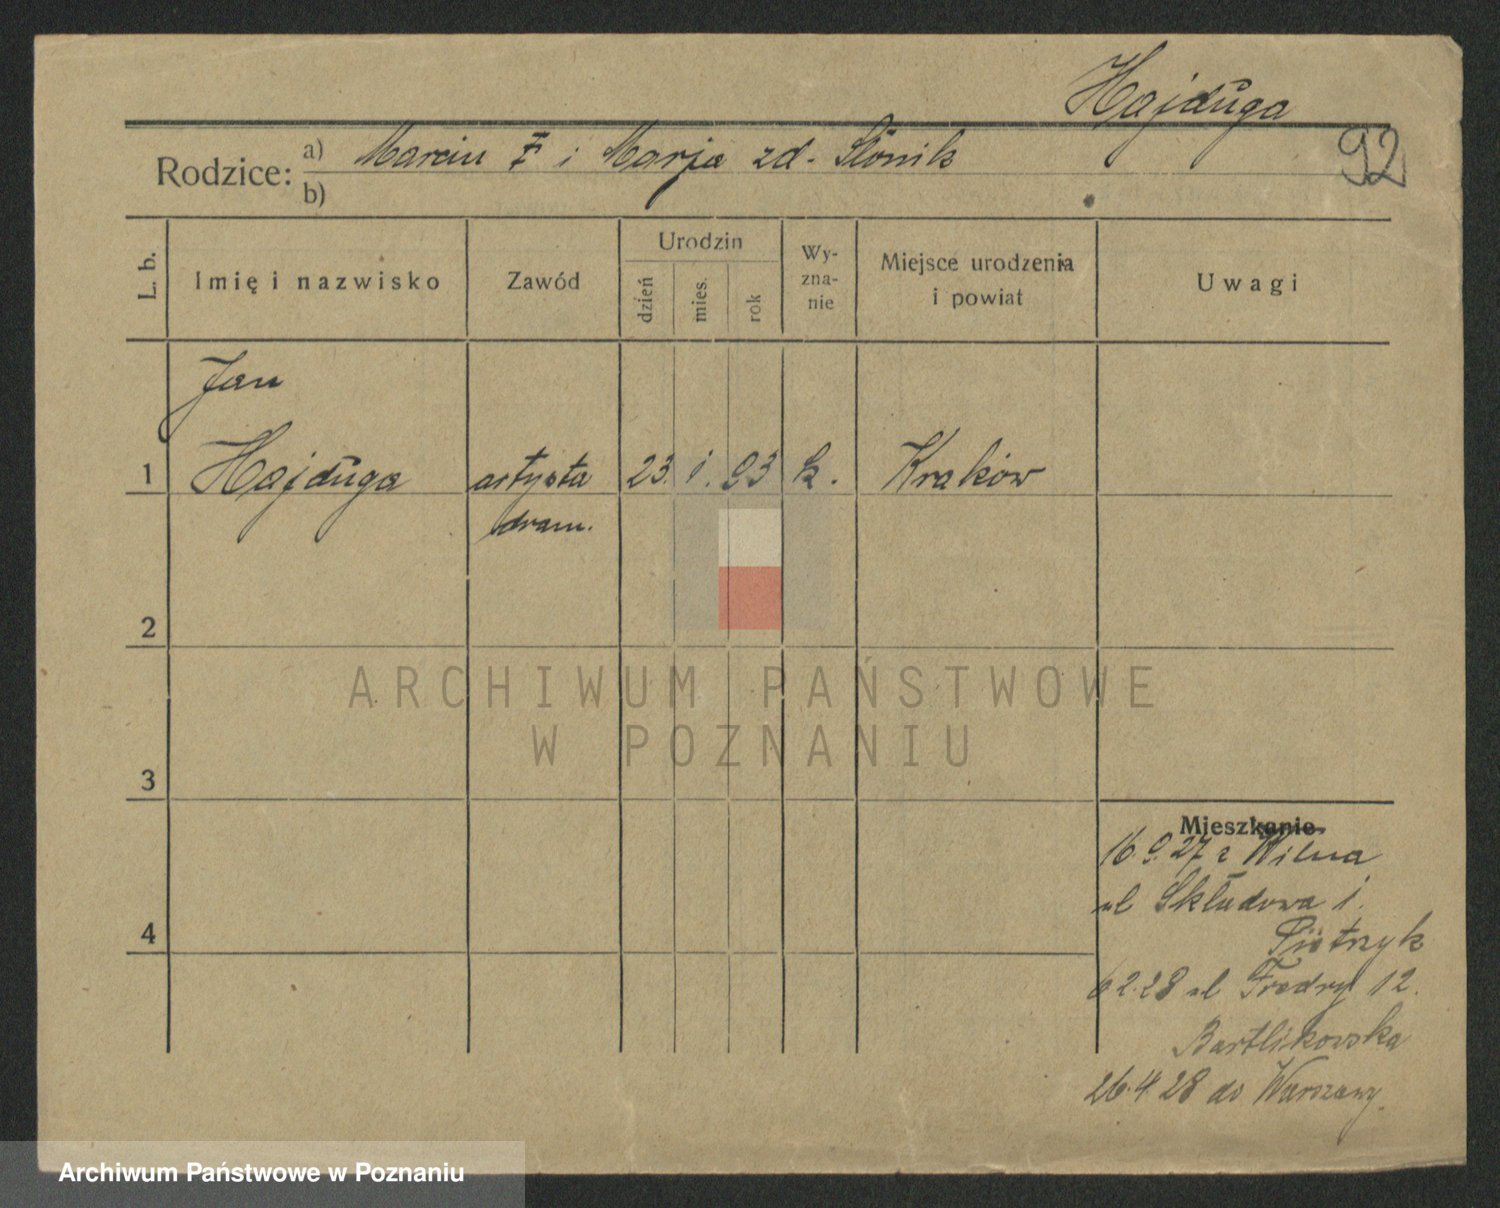 Hajduga
92
Rodzice: a) Marcin i Marja zd. Słonik
b)
L. b.
Imię i nazwisko
Zawód
Urodzin
dzień
mies.
rok
Wy-
zna-
nie
Miejsce urodzenia
i powiat
Uwagi
Jan
1 Hajduga artysta 23. 1. 93 k. Kraków
dram.
2
ARCHIWUM PAŃSTWOWE
W POZNANIU
3
Mieszkanie
16.9.27 z Wilna
ul Składowa 1.
Pietrzyk
6 2.28 ul Fredry 12.
Bartlikowska
26.4 28 do Warszawy.
4
Archiwum Państwowe w Poznaniu